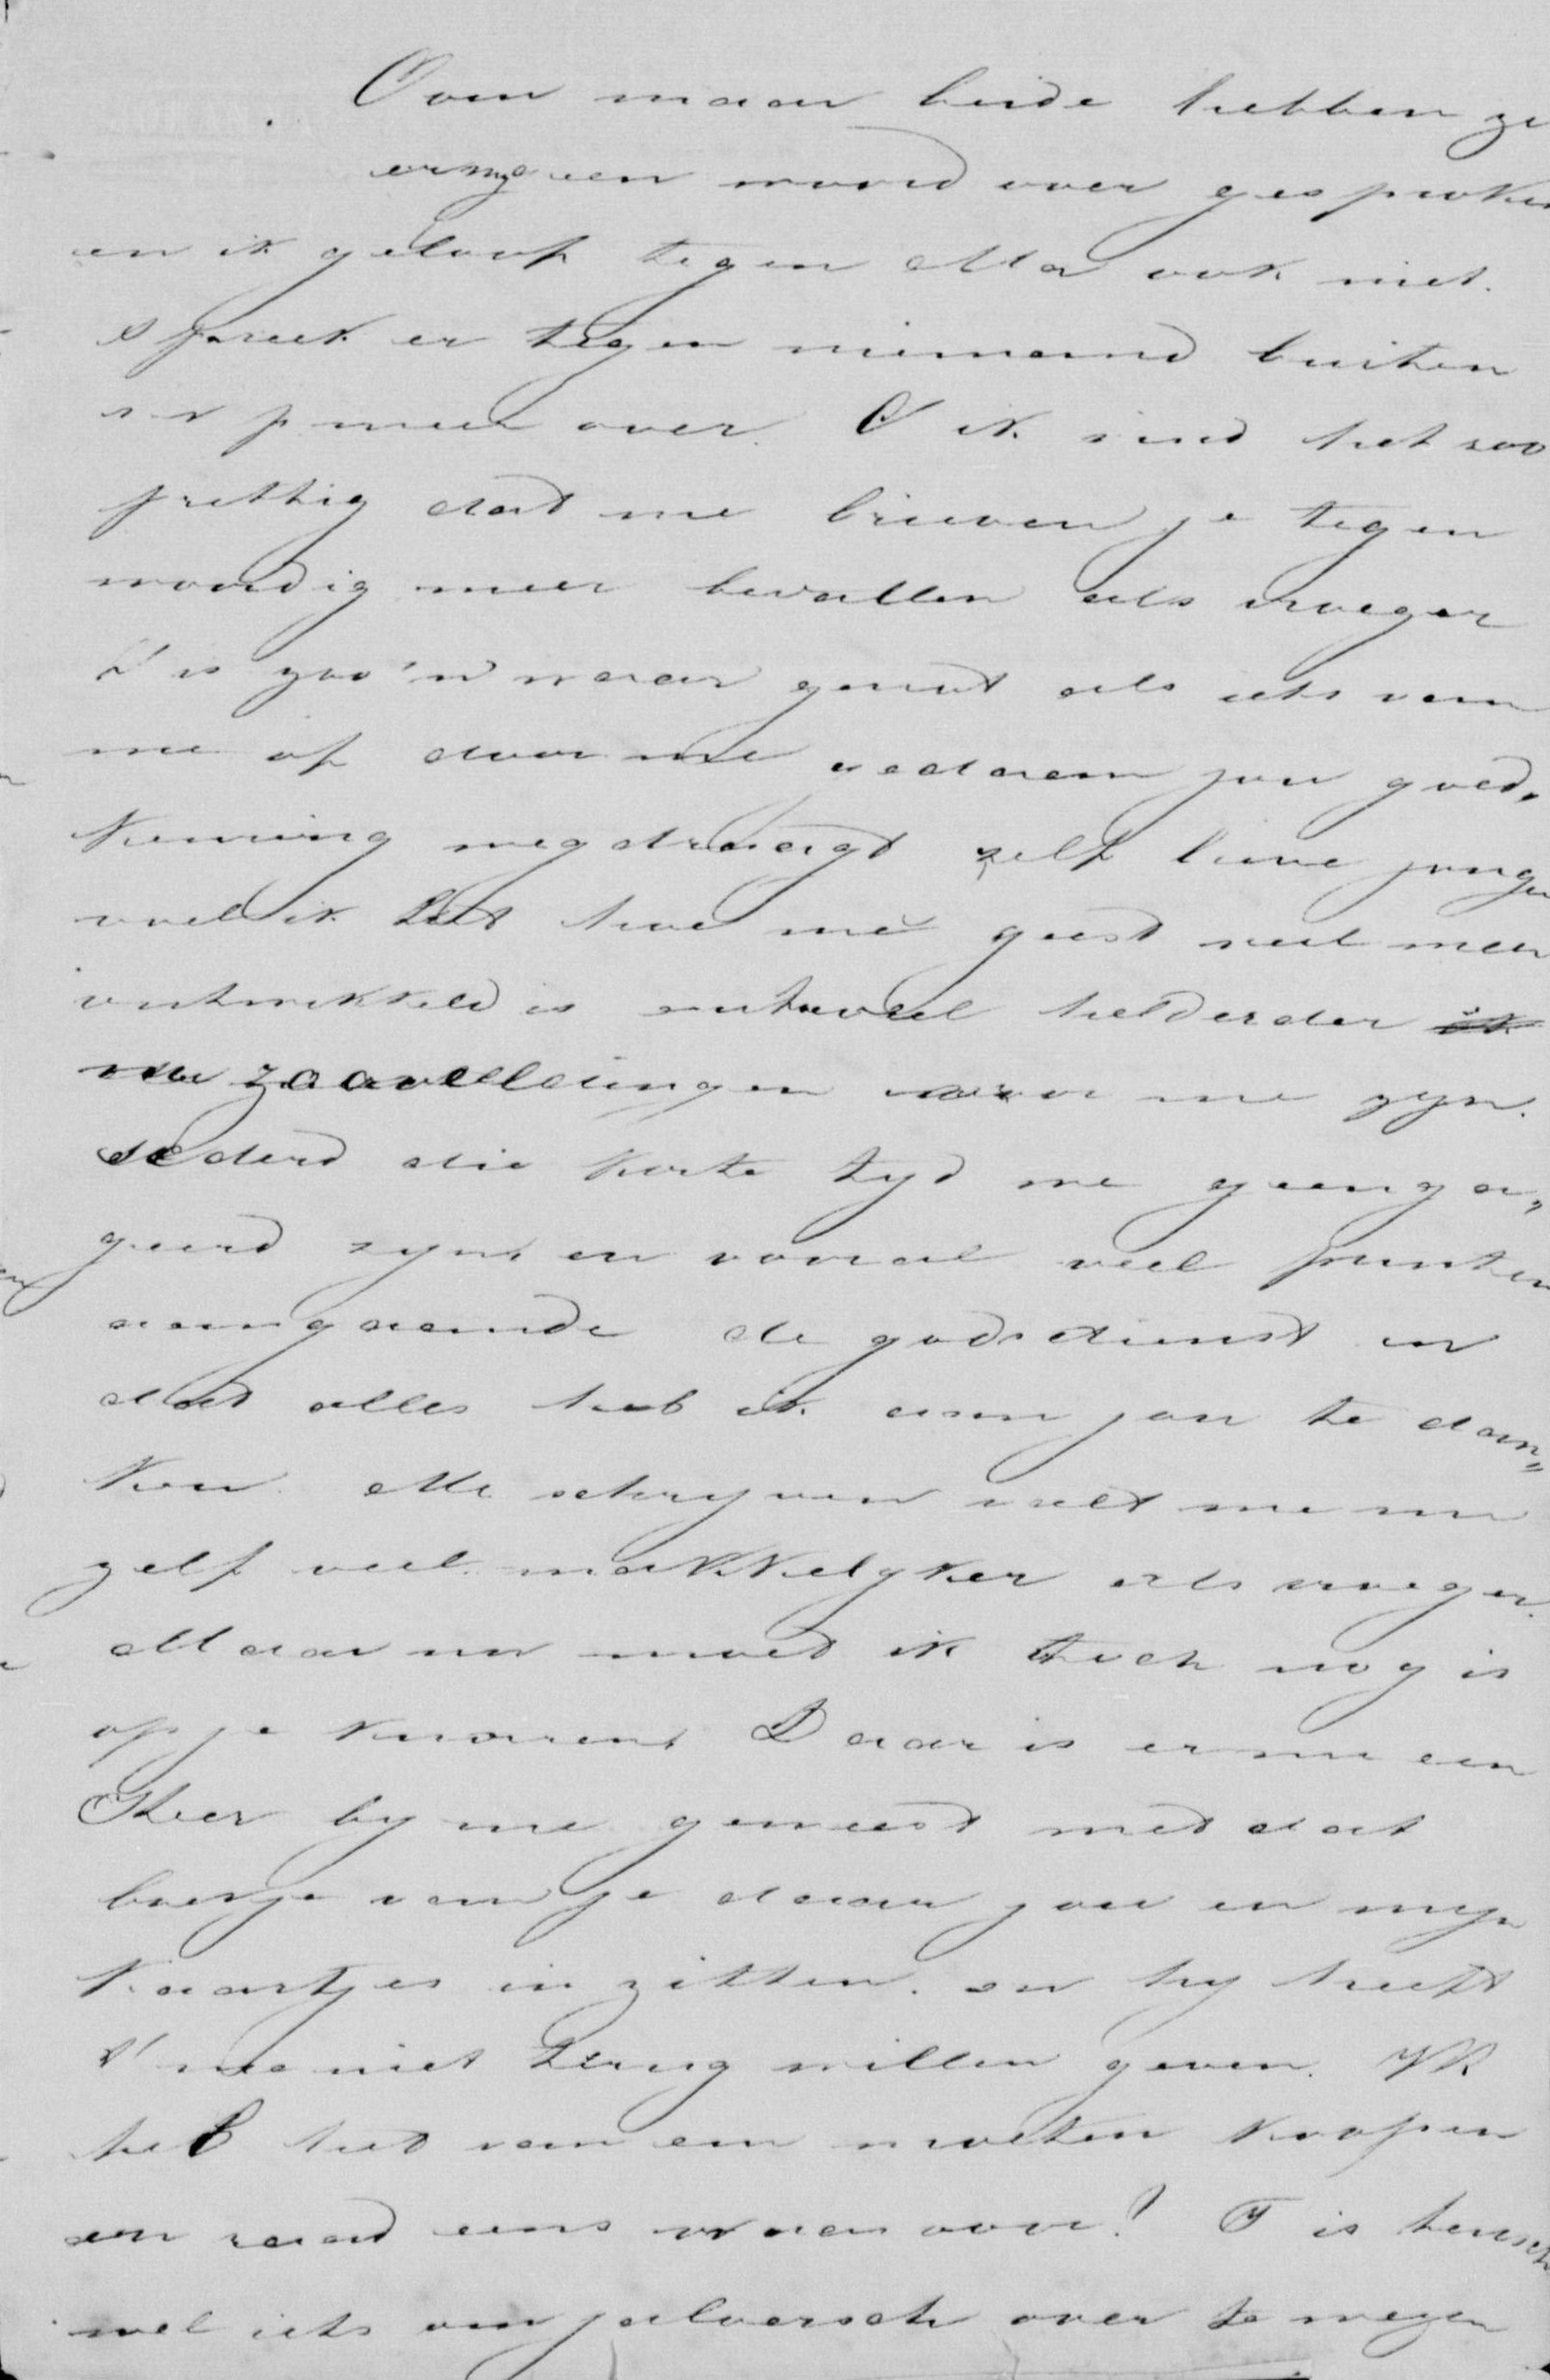 Oom maar beide hebben ze
er my geen woord over gesproken
en ik geloof tegen Ma ook niet.
spreek er tegen niemand buiten
svp meer over. O ik vind het zoo
prettig dat me brieven je tegen
woordig meer bevallen als vroeger
't is zoo'n waar genot als iets van
me of door me gedaan jou goed,
keuring wegdraagt zelf lieve jongen
voel ik het hoe me geest veel meer
ontwikkeld is hoeveel helderder
me zaavelleingen voor me zyn.
sederd die korte tyd we geenga,
geerd zyn, en vooral veel punten
aangaande de godsdienst en
dat alles heb ik aan jou te dan,
ken. Me schryven valt me nu
zelf veel makkelyker als vroeger.
Maar nu moet ik toch nog is
op je knorren, Daar is er nu een
Heer by me geweest met dat
boekje van je daar jou en myn
kaartjes in zitten. en hy heeft
't me niet terug willen geven. Ik
heb het van em moeten koopen
en raad eens waar voor! T is heusch
wel iets om jaloersch over te wezen